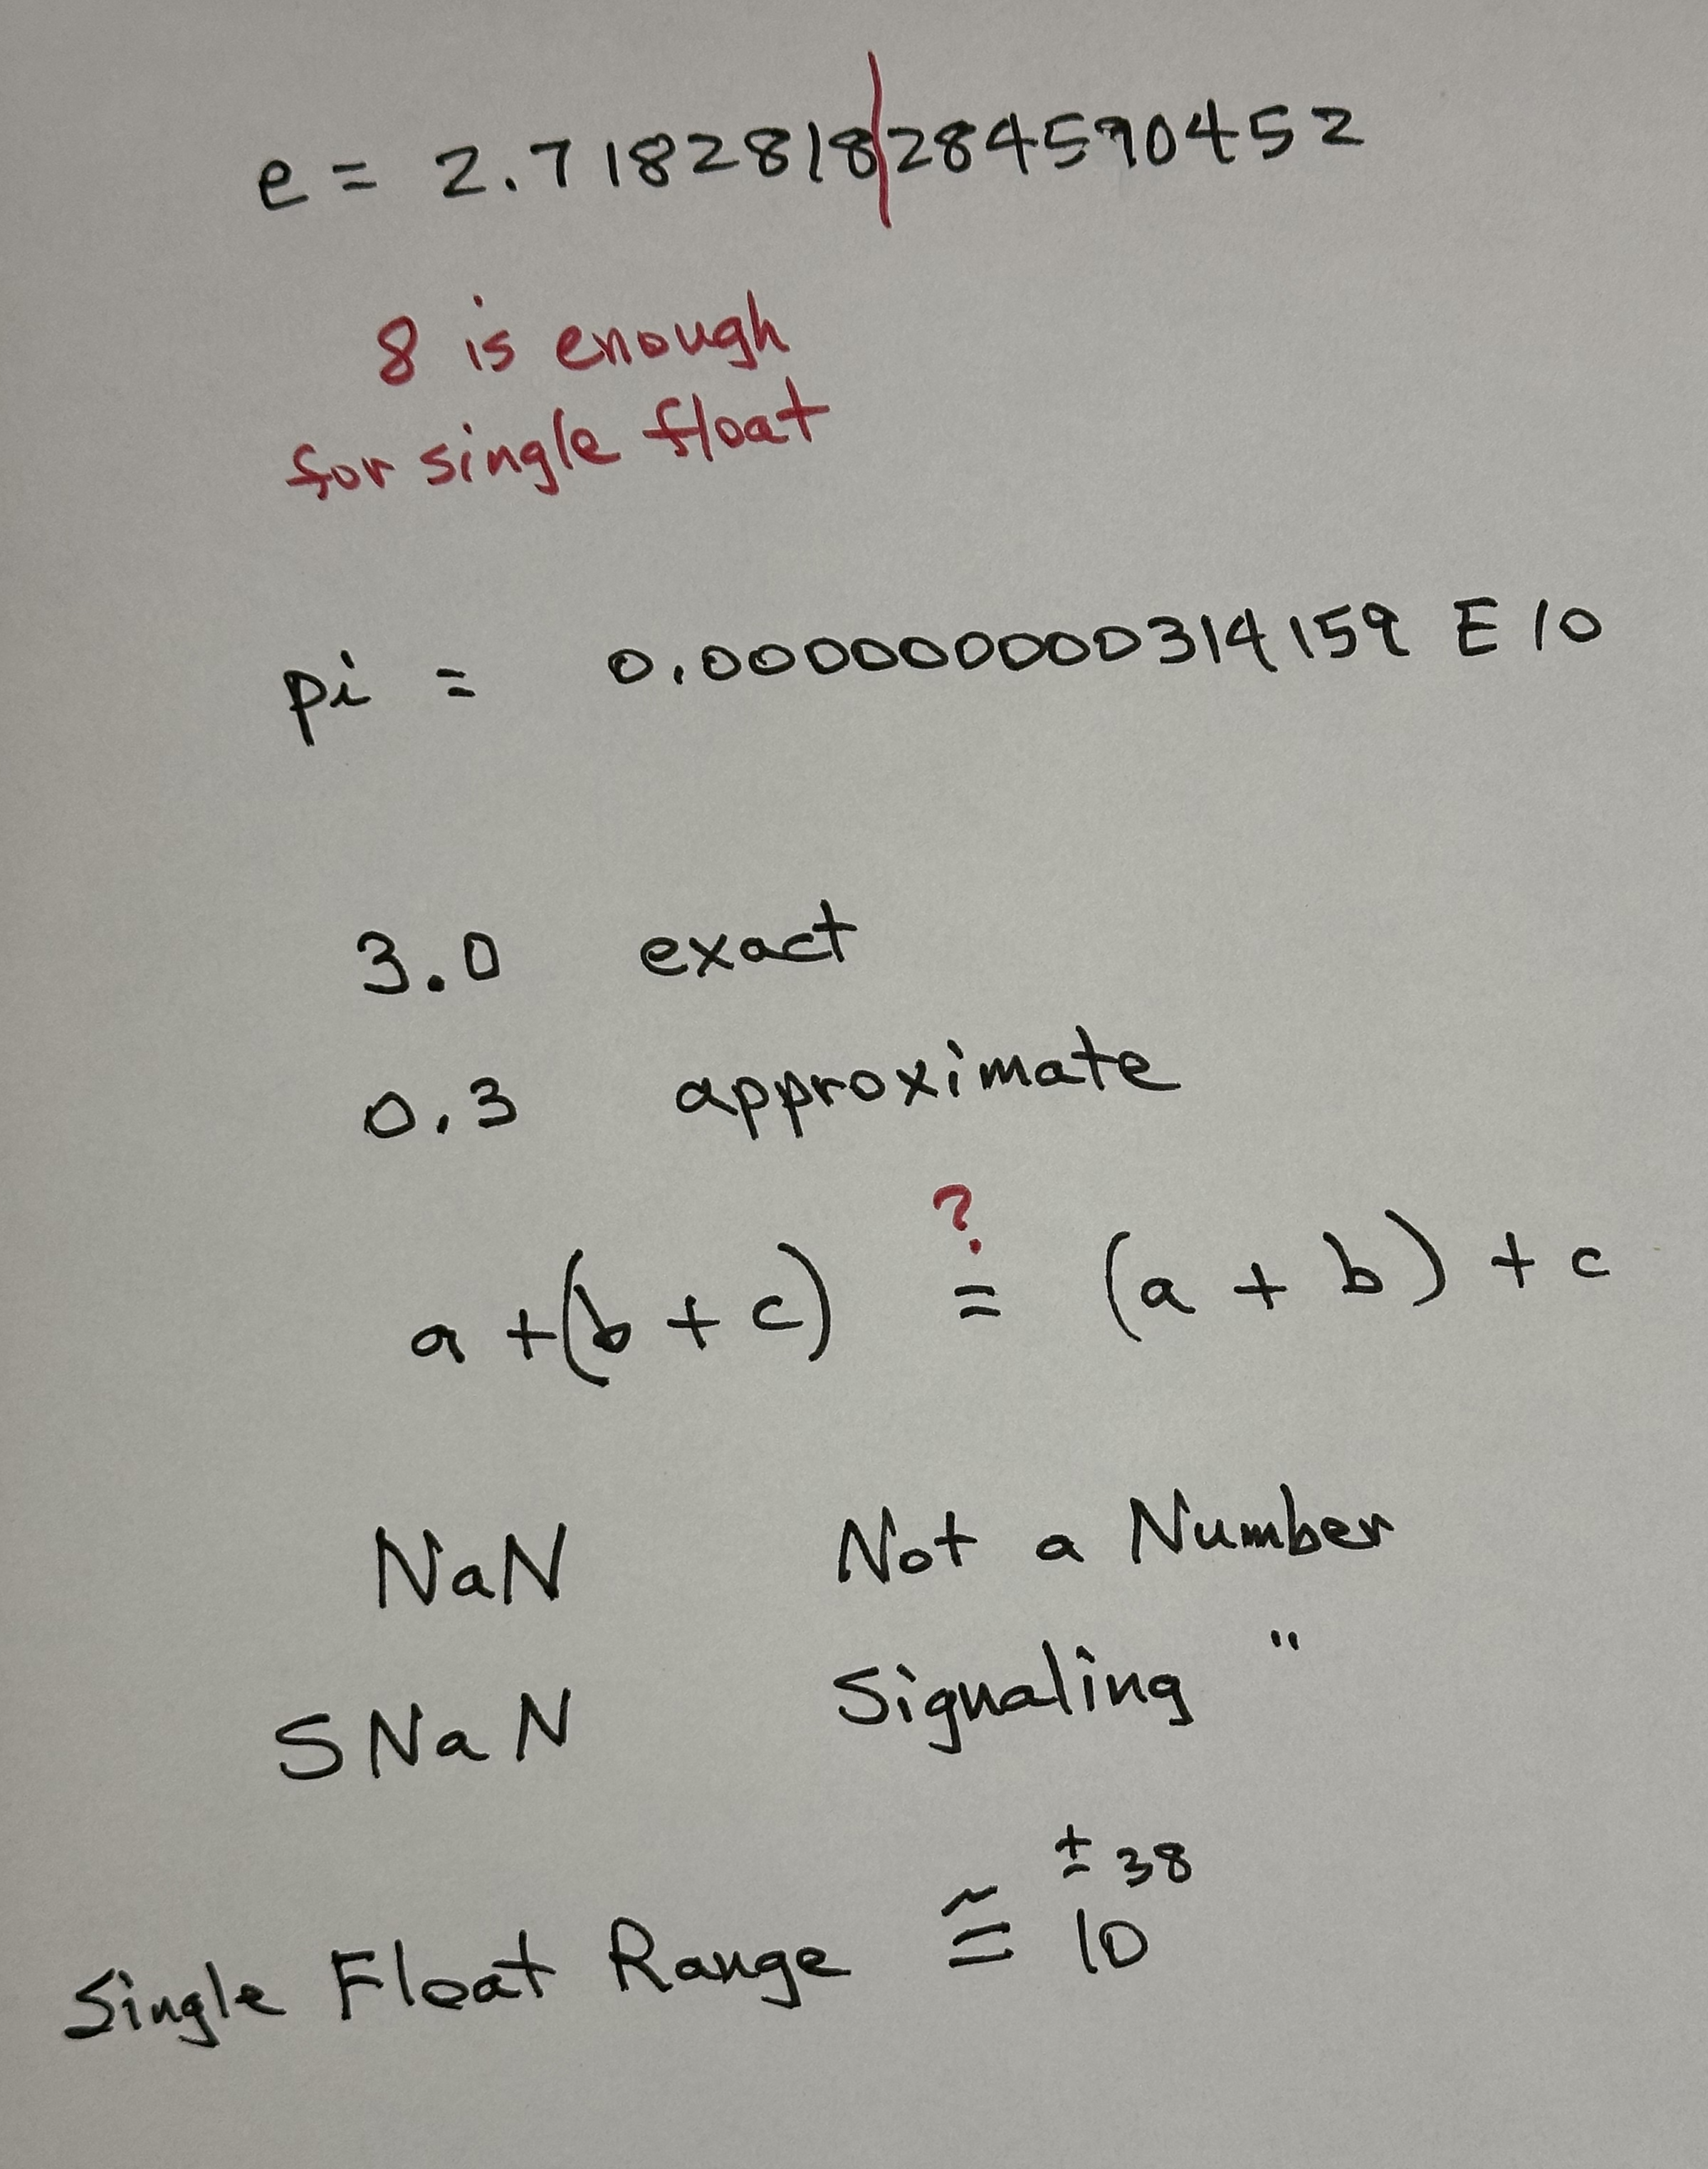 e = 2.7182818|284590452
8 is enough
for single float
pi = 0.000000000314159 E10
3.0 exact
0.3 approximate
?
a + (b + c) = (a + b) + c
NaN Not a Number
SNaN Signaling "
Single Float Range ≅ 10^±38